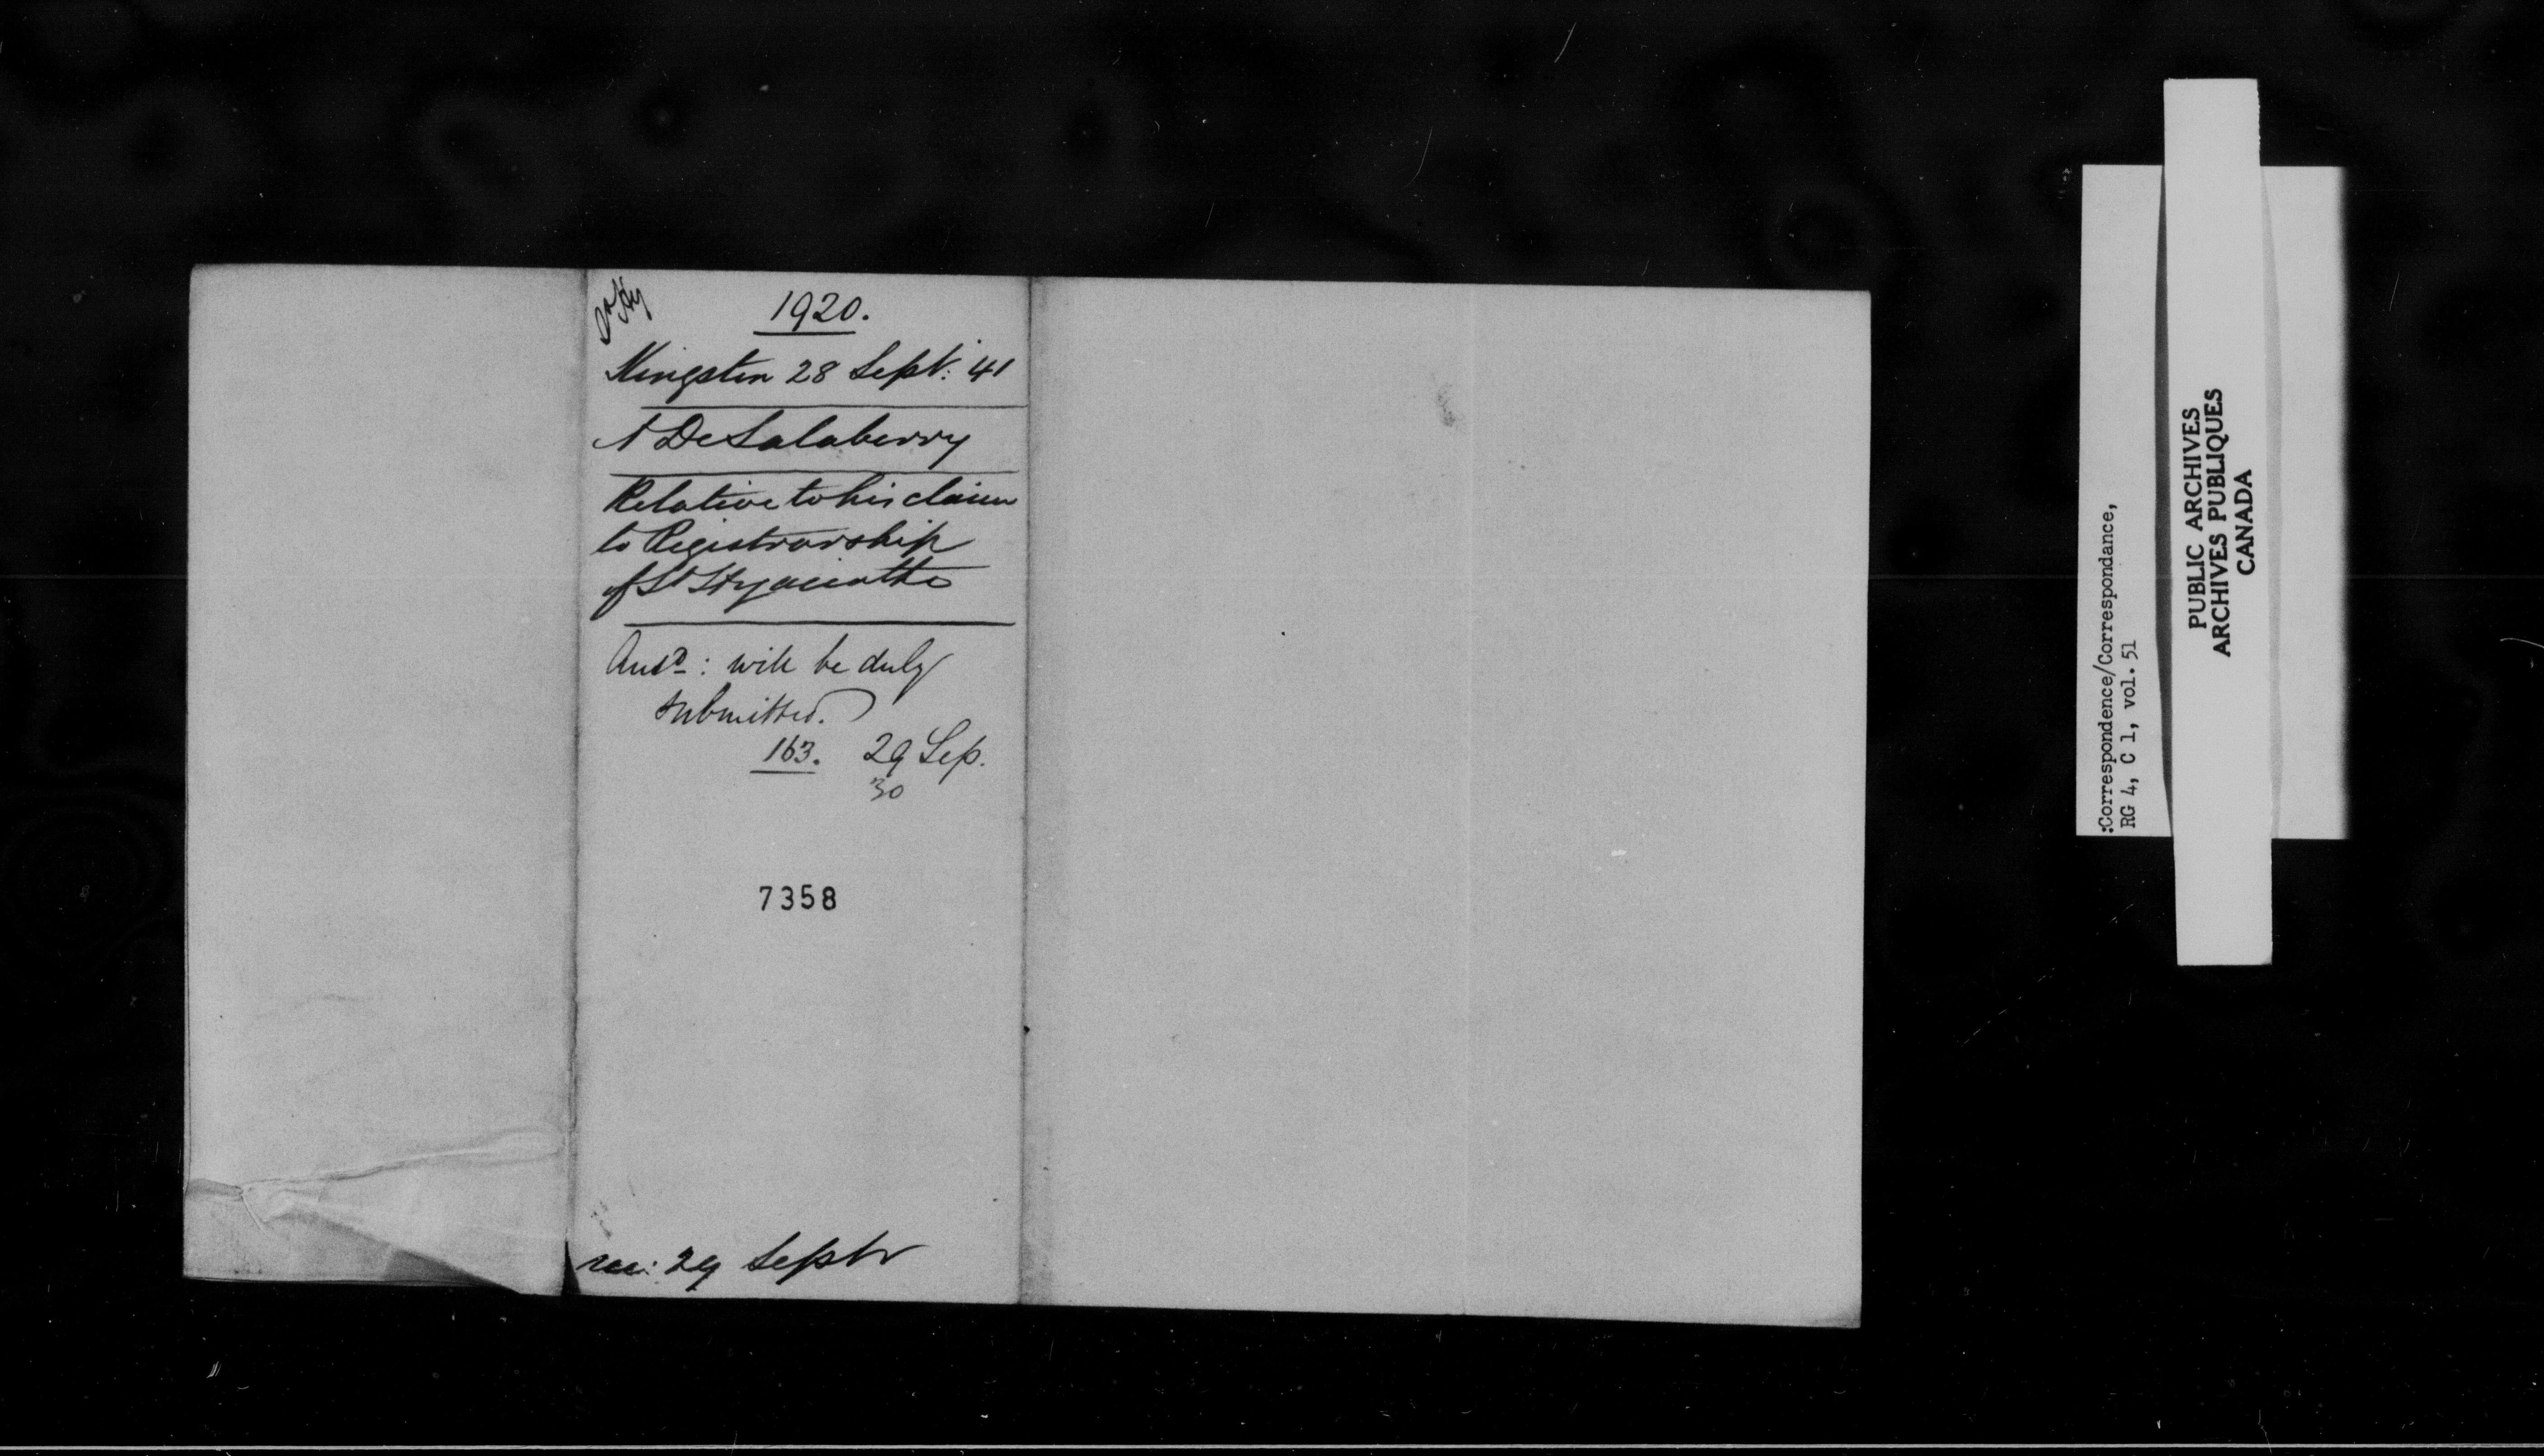 1920.
Kingston 28 Sept: 41
A DeSalaberry
Relative to his claim
to Registrarship
of St Hyacinthe
Ansd: will be duly
submitted.
163. 29 Sep.
30
7358
rec: 29 Septr
:Correspondence/Correspondance,
RG 4, C 1, vol. 51
PUBLIC ARCHIVES
ARCHIVES PUBLIQUES
CANADA